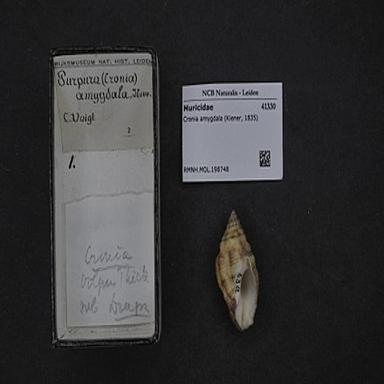 RIJKSMUSEUM NAT. HIST. LEIDEN
Purpura (Cronia)
amygdala, Kien.
C. Voigt
2
1.
Cronia
NCB Naturalis - Leiden
Muricidae 41330
Cronia amygdala (Kiener, 1835)
RMNH.MOL.198748